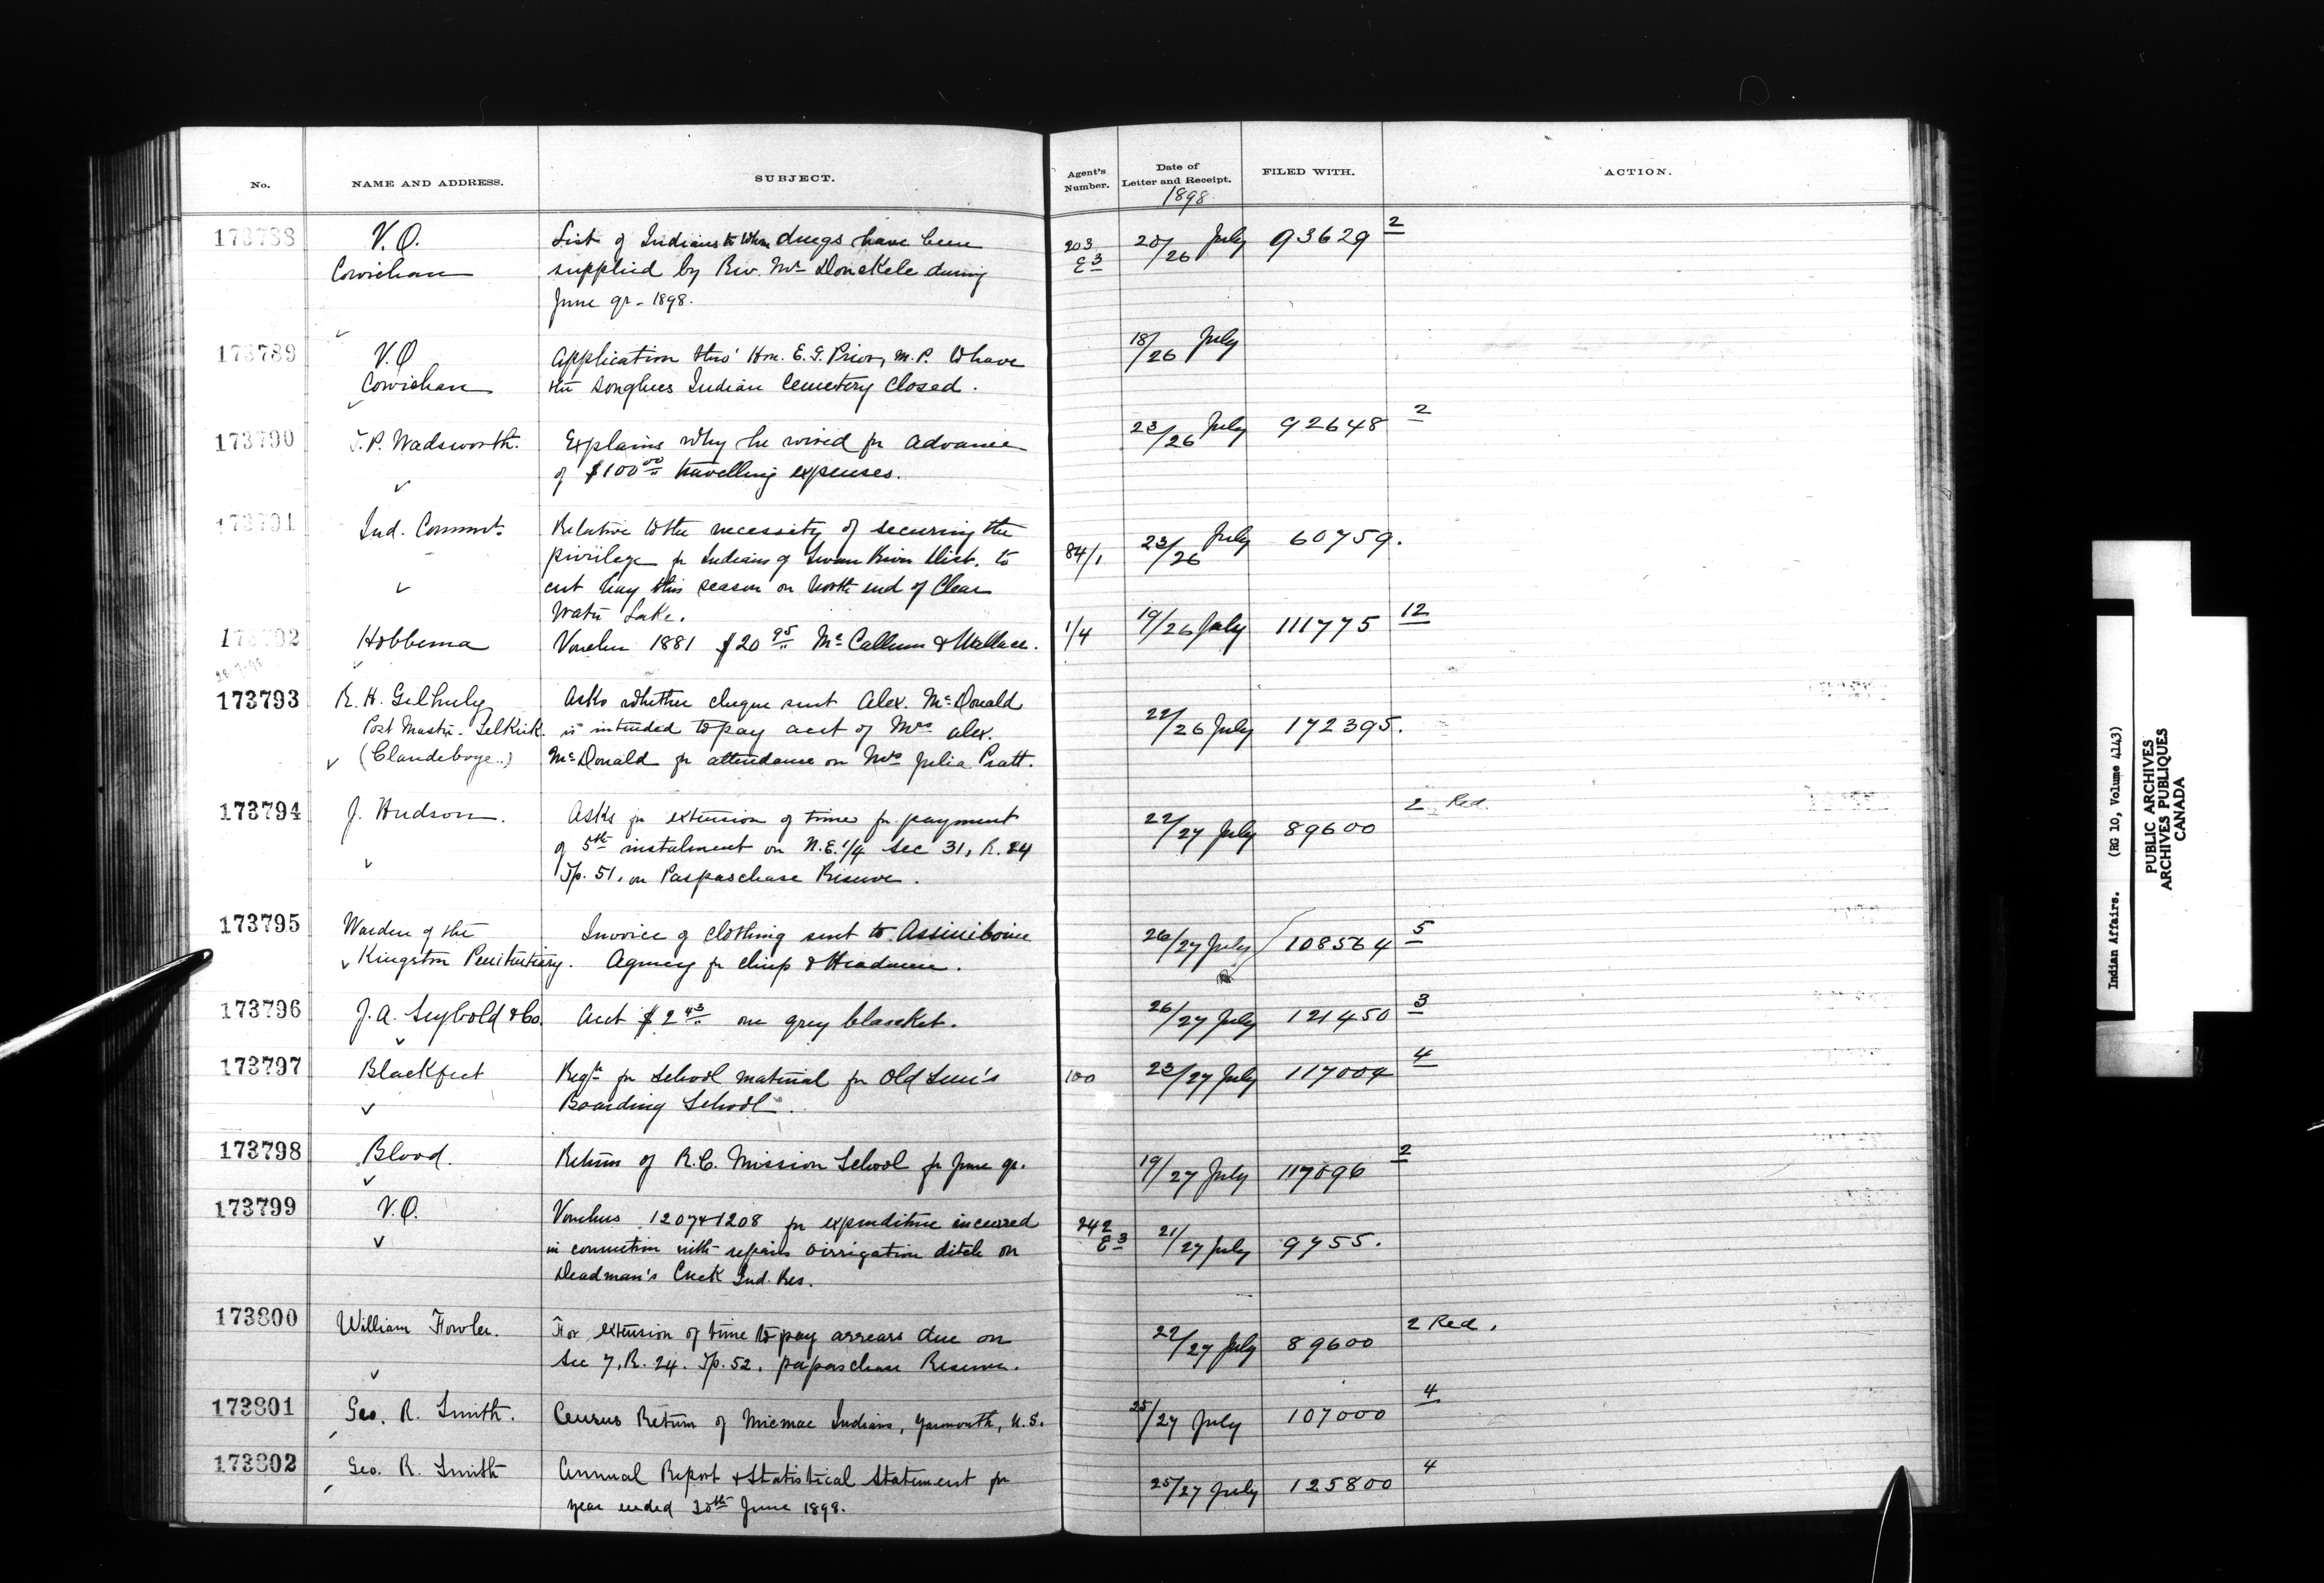 No. NAME AND ADDRESS. SUBJECT. Agent's Number. Date of Letter and Receipt. FILED WITH. ACTION.
1898
173788 V.O. List of Indians to whom drugs have been 203 20/26 July 93629 2
Cowichan supplied by Rev. Mr Donckele during E3
June qr - 1898.
173789 V.O Application thro' Hon. E. G. Prior, M.P. to have 18/26 July
Cowichan the Songhees Indian Cemetery closed.
173790 T.P. Wadsworth. Explains why he wired for advance 23/26 July 92648 2
of $100 00 travelling expenses.
173791 Ind. Commr. Relative to the necessity of securing the 23/26 July 60759.
privilege for Indians of Swan River Dist. to 84/1
cut hay this season on north end of Clear
Water Lake.
173792 Hobbema Voucher 1881 $20 95 Mc Callum & Wallace. 1/4 19/26 July 111775 12
173793 R. H. Gilhuly Asks whether cheque sent Alex. McDonald
Post Master - Selkirk. is intended to pay acct of Mrs Alex. 22/26 July 172395.
(Clandeboye..) McDonald for attendance on Mrs Julia Pratt.
173794 J. Hudson. Asks for extension of time for payment 22/27 July 89600 2 Red.
of 5th instalment on N.E. 1/4 Sec 31, R. 24
Tp. 51, on Paspaschase Reserve.
173795 Warden of the Invoice of clothing sent to Assiniboine 26/27 July 108564 5
Kingston Penitentiary. Agency for chiefs & Headmen.
173796 J. A. Seybold & Co. Acct $2 43 one grey blanket. 26/27 July 121450 3
173797 Blackfeet Reqn for School material for Old Sun's 100 23/27 July 117004 4
Boarding School.
173798 Blood. Return of R.C. Mission School for June qr. 19/27 July 117096 2
173799 V.O. Vouchers 1207 & 1208 for expenditure incurred 242 21/27 July 9755.
in connection with repairs irrigation ditch on E3
Deadman's Creek Ind. Res.
173800 William Fowler. For extension of time to pay arrears due on 22/27 July 89600 2 Red.
Sec 7, R. 24. Tp. 52, papaschase Reserve.
173801 Geo. R. Smith. Census Return of Micmac Indians, Yarmouth, N.S. 25/27 July 107000 4
173802 Geo. R. Smith Annual Report & Statistical Statement for 25/27 July 125800 4
year ended 30th June 1898.
Indian Affairs. (RG 10, Volume 4143)
PUBLIC ARCHIVES
ARCHIVES PUBLIQUES
CANADA